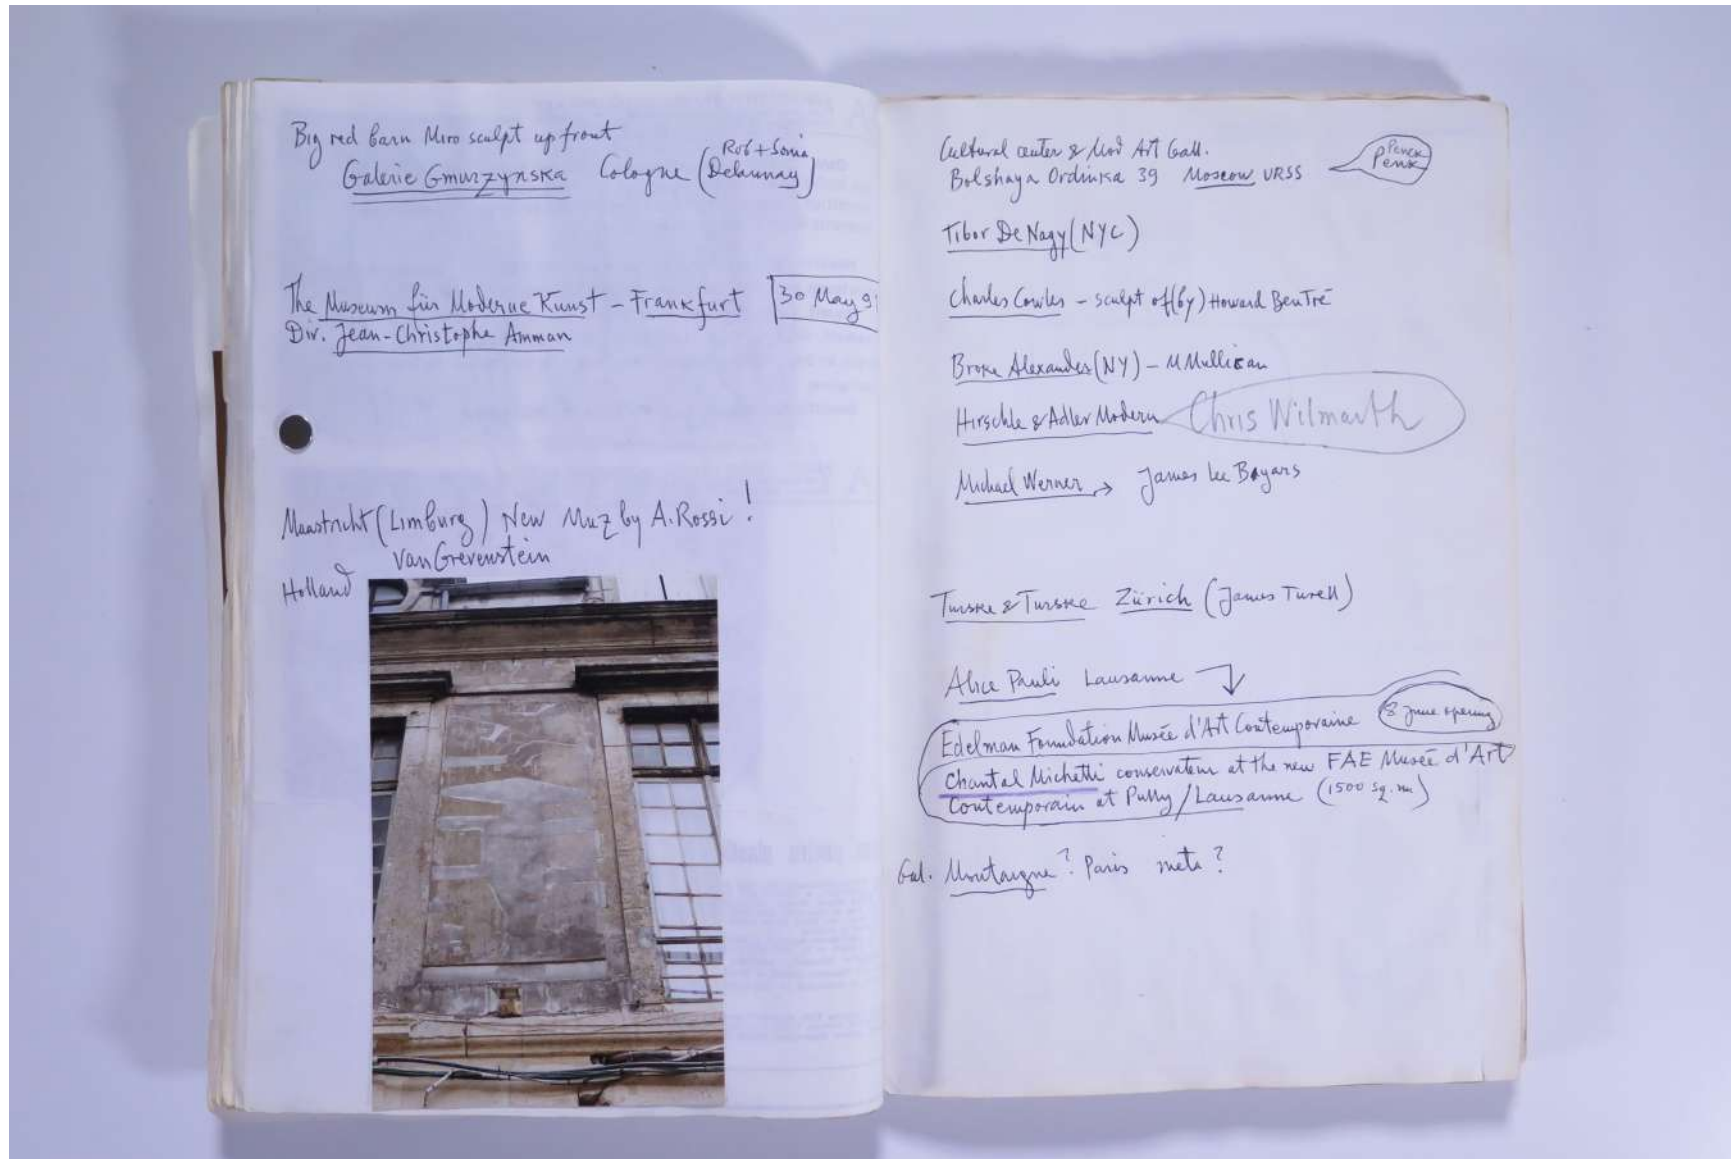 Big red barn Miro sculpt up front
Galerie Gmurzynska Cologne (Rob + Sonia Delaunay)
The Museum für Moderne Kunst – Frankfurt 30 May 9
Dir. Jean-Christophe Amman
Maastricht (Limburg) New Muz by A. Rossi !
van Grevenstein
Holland
Cultural center & Mod Art Gall.
Bolshaya Ordinka 39 Moscow URSS
Penck
Penk
Tibor De Nagy (NYC)
Charles Cowles – sculpt of (by) Howard BenTré
Broke Alexander (NY) – M Mullican
Hirschle & Adler Modern Chris Wilmarth
Michael Werner → James Lee Byars
Turske & Turske Zürich (James Turell)
Alice Pauli Lausanne
Edelman Foundation Musée d'Art Contemporaine 8 june opening
Chantal Michetti conservateur at the new FAE Musée d'Art
Contemporain at Pully / Lausanne (1500 sq. m)
Gal. Montaigne ? Paris mete ?